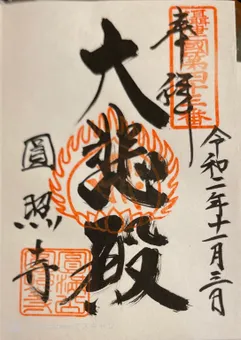 奉拝
大悲殿
圓照寺
令和二年十一月三日